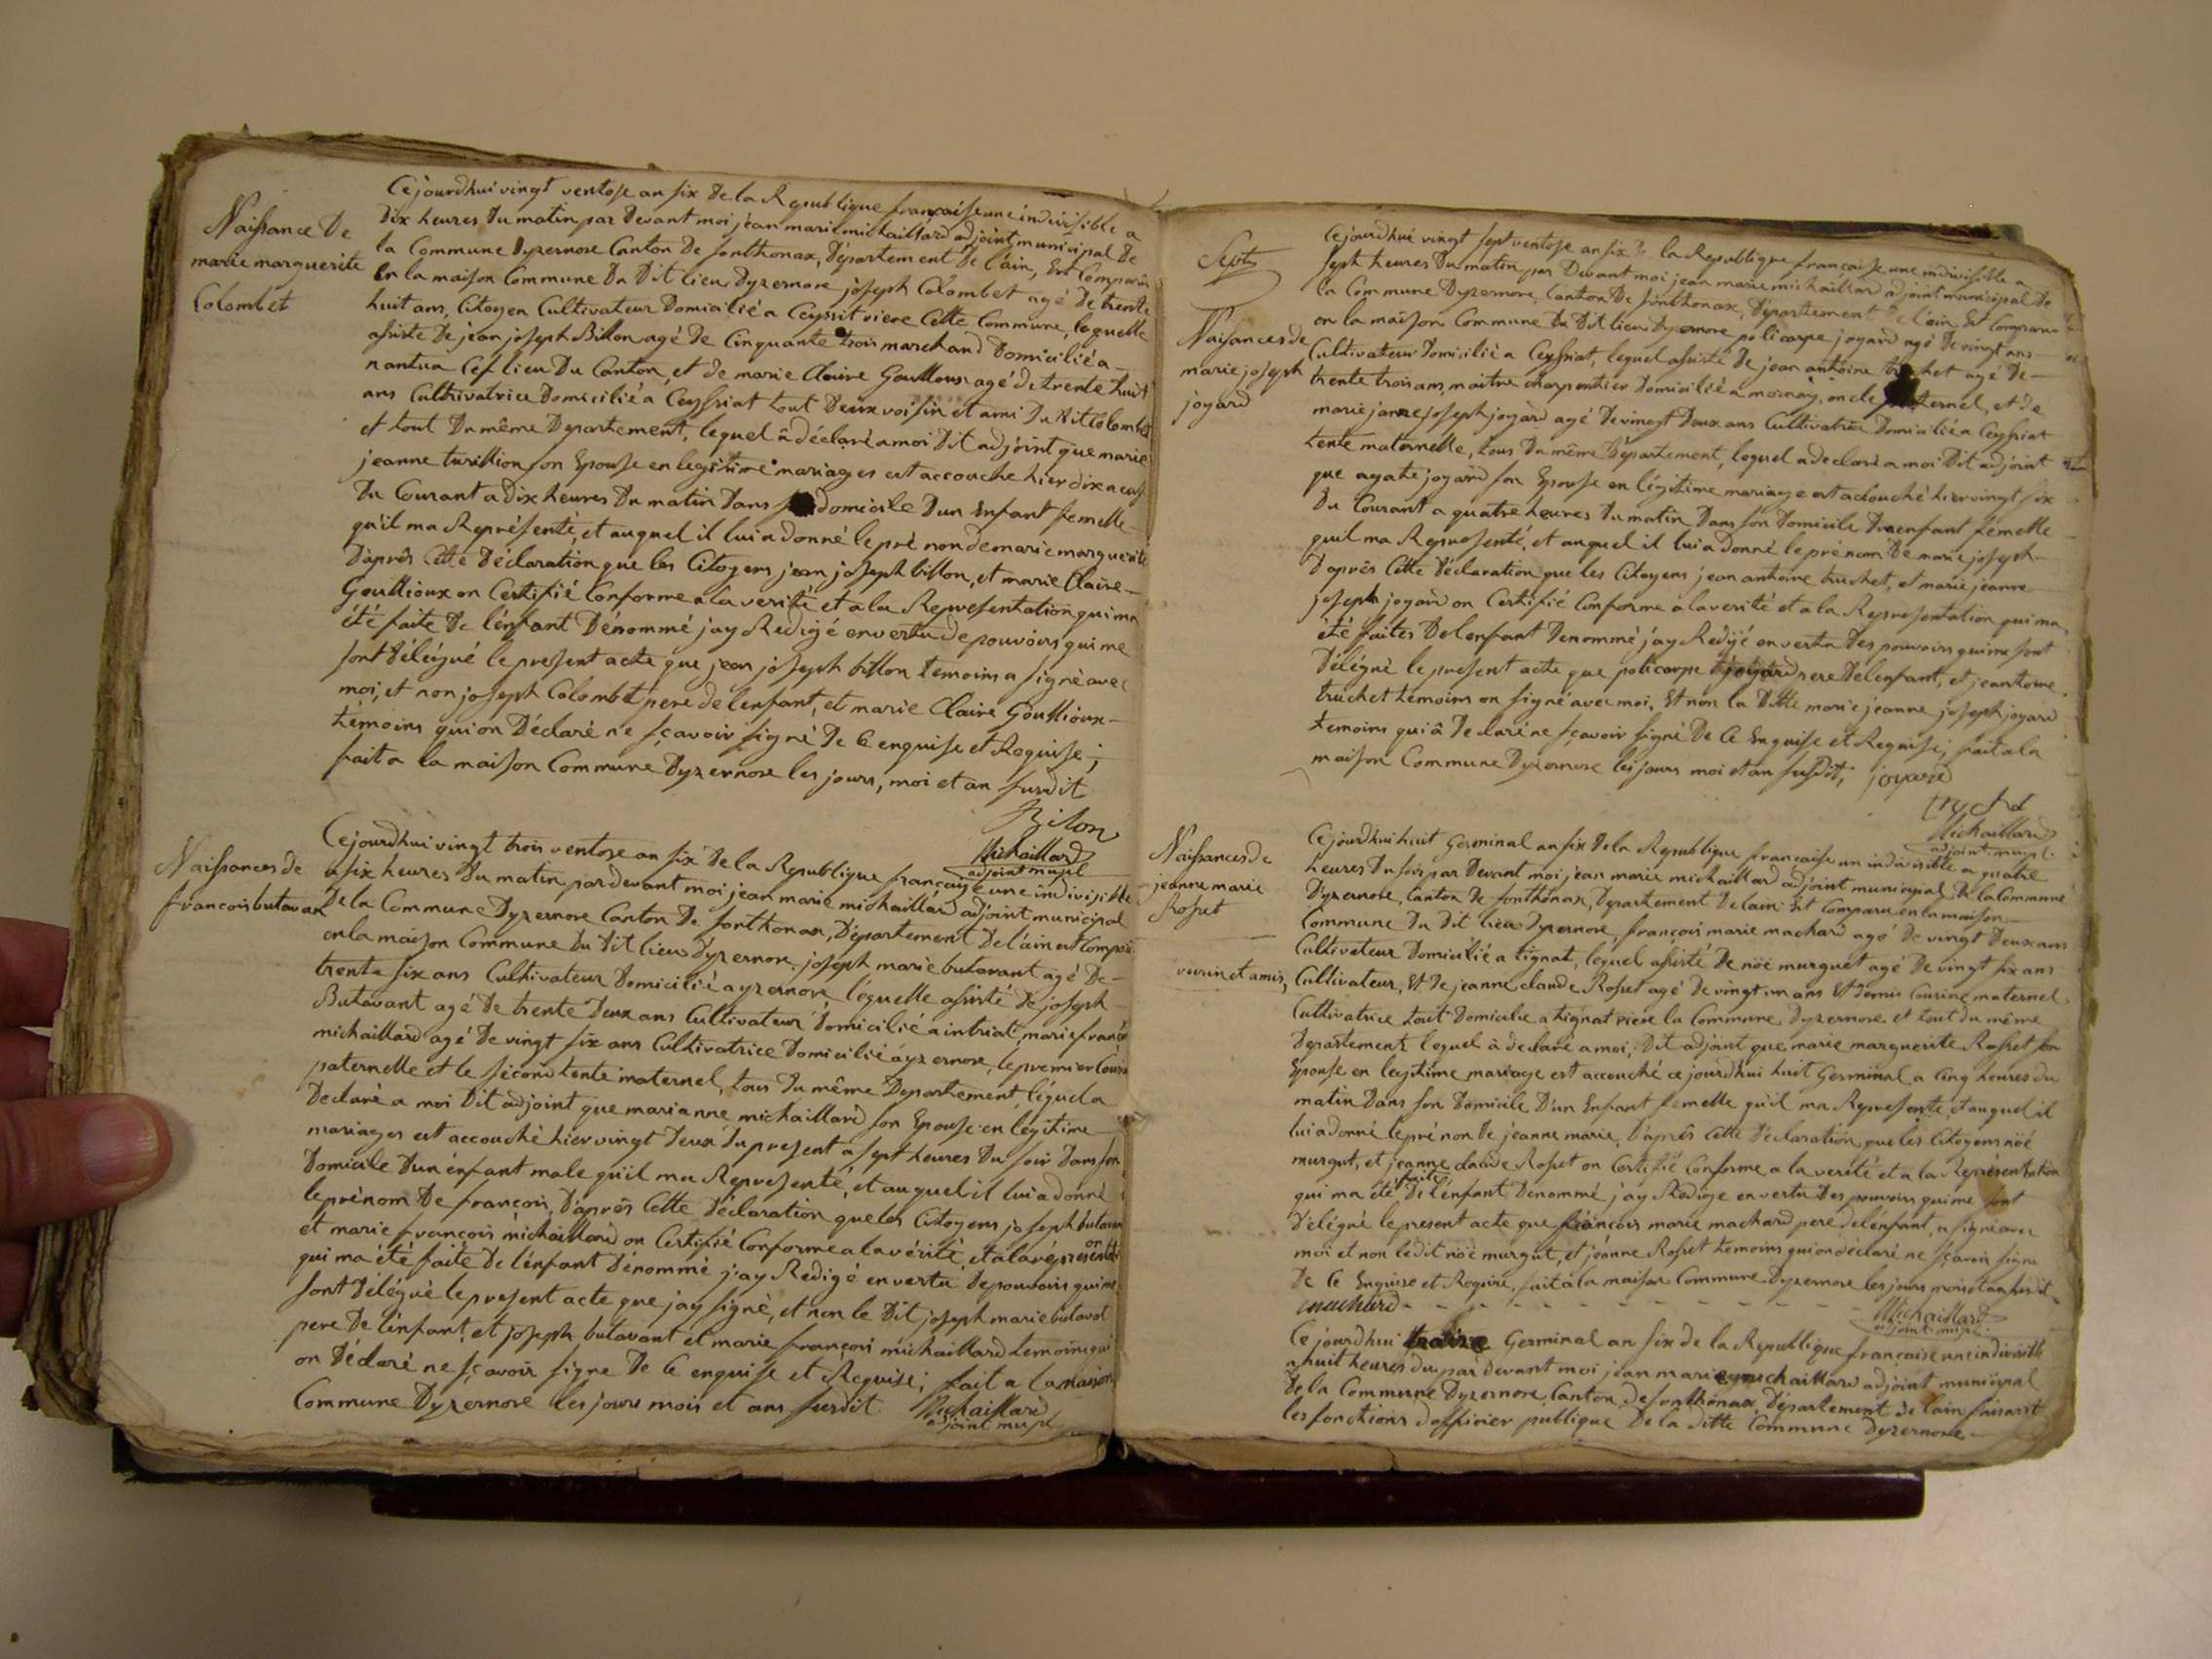 Naissance De
marie marguerite
Colombet
Cejourdhui vingt ventose an six De la Republique française une indivisible a
Dix heures Du matin par Devant moi jean marie michaillard adjoint municipal De
la Commune Dyzernore Canton De sonthonax, Département De l'ain, Est Comparu
En la maison Commune Du Dit lieu Dyzernore joseph Colombet agé De trente
huit ans, Citoyen Cultivateur Domicilié a Ceyssit riere Cette Commune, lequelle
assiste De jean joseph Billon agé De Cinquante trois marchand Domicilié a
nantua Cef lieu Du Canton, et de marie Claire Goullioux agé de trente huit
ans Cultivatrice Domicilié a Ceyssiat tout Deux voisin et ami Du Dit Colombet
et tout Du même Departement, lequel à déclaré a moi Dit adjoint que marie
jeanne turillion son Epouse en legitime mariages est accouche hier dix neuf
Du Courant a Dix heures Du matin Dans domicile Dun Enfant femelle
qu'il ma Représenté, et auquel il lui a donné le pré non de marie marguerite
D'après Cette Déclaration que les Citoyens jean joseph billon, et marie Claire
Goullioux on Certifié Conforme a la verité et a la Representation qui ma
été faite De l'énfant Dénommé j'ay Redigé en vertu de pouvoirs qui me
sont Délégué le present acte que jean joseph billon temoins a signé avec
moi, et non joseph Colombet pere de lenfant, et marie Claire Goullioux
témoins qui on Déclaré ne sçavoir signé De Ce enquise et Requise;
fait a la maison Commune Dyzernore les jours, moi et an susdit
Bilon
Michaillard
adjoint mupl
Naissances de
francois butavan
Cejourdhui vingt trois ventose an six De la Republique française une indivisible
a six heures Du matin par devant moi jean marie michaillard adjoint municipal
De la Commune Dyzernore Canton De sonthonax, Département De l'ain est Comparu
en la maison Commune Du Dit lieu Dyzernore joseph marie butavant agé De
trente six ans Cultivateur Domicilié a yzernore, lequelle assisté De joseph
Butavant agé De trente Deux ans Cultivateur Domicilié a intriat, marie françoi
michaillard agé De vingt six ans Cultivatrice Domicilié a yzernore, le premier Cousin
paternelle et le second tente maternel, tous Du même Departement, léquel a
Declaré a moi Dit adjoint que marianne michaillard son Epouse en légitime
mariages est accouché hier vingt Deux Du present a sept heures Du soir Dans son
Domicile Dun énfant male qu'il ma Representé, et auquel il lui a donné
le prénom De françois, D'après Cette Déclaration que les Citoyens joseph butavan
et marie françois michaillard on Certifié Conforme a la vérité, et a la représentation
qui ma été faite De l'énfant Dénommé j'ay Redigé en vertu De pouvoirs qui me
sont Délégué le present acte que jay signé, et non le Dit joseph marie butavat
pere De l'énfant, et joseph butavant et marie françoi michaillard temoins qui
on Déclaré ne sçavoir signe De Ce enquise et Requise; fait a la maison
Commune Dyzernore les jours mois et ans susdit.
Michaillard
adjoint mupl
Sept
Naissances de
marie joseph
joyard
Cejourdhui vingt sept ventose an six De la Republique française une indivisible a
sept heures Du matin par Devant moi jean marie michaillard adjoint municipal De
la Commune Dyzernore, Canton De sonthonax, Département De l'ain Est Comparu
en la maison Commune Du Dit lieu Dyzernore policarpe joyard agé De vingt ans
Cultivateur Domicilié a Ceyssiat, lequel assisté De jean antoine truchet agé De
trente trois ans, maitre charpentier Domicilié a mornay, oncle, et de
marie janne joseph joyard agé De vingt Deux ans Cultivatrice Domicilié a Ceyssiat
tente maternelle, tous Du même Département, lequel a declaré a moi Dit adjoint
que agate joyard son Epouse en légitime mariage est accouché hier vingt six
Du Courant a quatre heures Du matin Dans son Domicile Dun enfant femelle
qu'il ma Representé, et auquel il lui a donné le prénom De marie joseph
D'après Cette Déclaration que les Citoyens jean antoine truchet, et marie jeanne
joseph joyard on Certifié Conforme a la verité et a la Representation qui ma
été faites De lenfant Denommé j'ay Rédijé en vertu Des pouvoirs qui me sont
Délégué le present acte que policarpe joyard pere De lenfant, et jeantoine
truchet témoins on signé avec moi, Et non la Ditte marie jeanne joseph joyard
temoins qui â Declaré ne sçavoir signé De Ce Enquise et Requise; fait a la
maison Commune Dyzernore les jours moi et an susdit, joyard
truchet
Michaillard
adjoint mupl.
Naissances de
jeanne marie
Rosset
Cejourdhui huit Germinal an six De la Republique française un indivisible a quatre
heures Du soir par Devant moi jean marie michaillard adjoint municipal De la Commune
Dyzernore, Canton De sonthonax, Departement De lain Est Comparu en la maison
Commune Du Dit lieu Dyzernore, françois marie machard agé De vingt Deux ans
Cultivateur Domicilié a tignat, lequel assisté De nöé murguet agé De vingt six ans
voisin et amis, Cultivateur, Et De jeanne claude Rosset agé De vingt un ans Et demis Cousine maternel
Cultivatrice tout Domicilie a tignat riere la Commune Dyzernore et tout du même
Departement lequel à declaré a moi, Dit adjoint que marie marguerite Rosset son
Epouse en legitime mariage est accouché ce jourdhui huit Germinal a cinq heures du
matin Dans son Domicile D'un Enfant femelle qu'il ma Representé, et auquel il
lui a donné le pré non De jeanne marie, D'après Cette Déclaration que les Citoyens nöé
murgut, et jeanne claude Rosset on Certifié Conforme a la verité et a la Représentation
qui ma été faite De l'énfant Dénommé j'ay Redige en vertu Des pouvoirs qui me sont
Délégué le present acte que françois marie machard pere de lénfant, a signé avec
moi et non ledit nöé murgut, et jéanne Rosset temoins qui on déclaré ne sçavoir signe
De Ce Enquise et Requise, fait a la maison Commune Dyzernore les jours mois et an susdit.
machard
Michaillard
adjoint mupl.
Cejourdhui Germinal an six de la Republique française une indivisible
a huit heures du par devant moi jean marie michaillard adjoint municipal
De la Commune Dyzernore, Canton de sonthonax, Département de lain faisant
les fonctions dofficier publique De la ditte Commune dyzernore